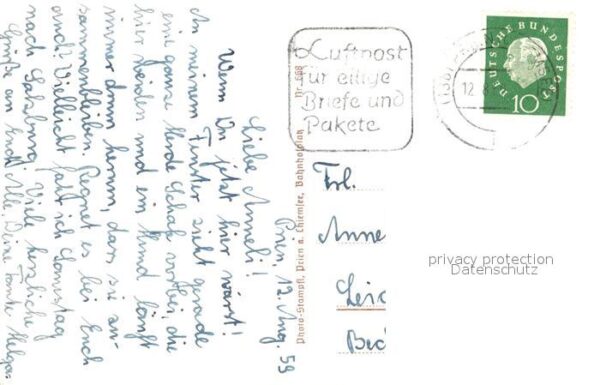 Prien, 12. Aug. 59
Liebe Anneli!
Wenn Du jetzt hier wärst!
An meinem Fenster zieht gerade
eine ganze Herde Schafe vorbei, die
hier weiden und ein Hund läuft
immer drum herum, dass sie zu-
sammenbleiben. Regnet es bei Euch
auch? Vielleicht fahr ich Samstag
nach Salzburg. Viele herzliche
Grüße an Euch Alle, Deine Tante Helga
Photo-Stampfl, Prien a. Chiemsee, Bahnhofplatz Nr. 668
Luftpost
für eilige
Briefe und
Pakete
12.8.
DEUTSCHE BUNDESPOST
10
Frl.
Anne
privacy protection
Datenschutz